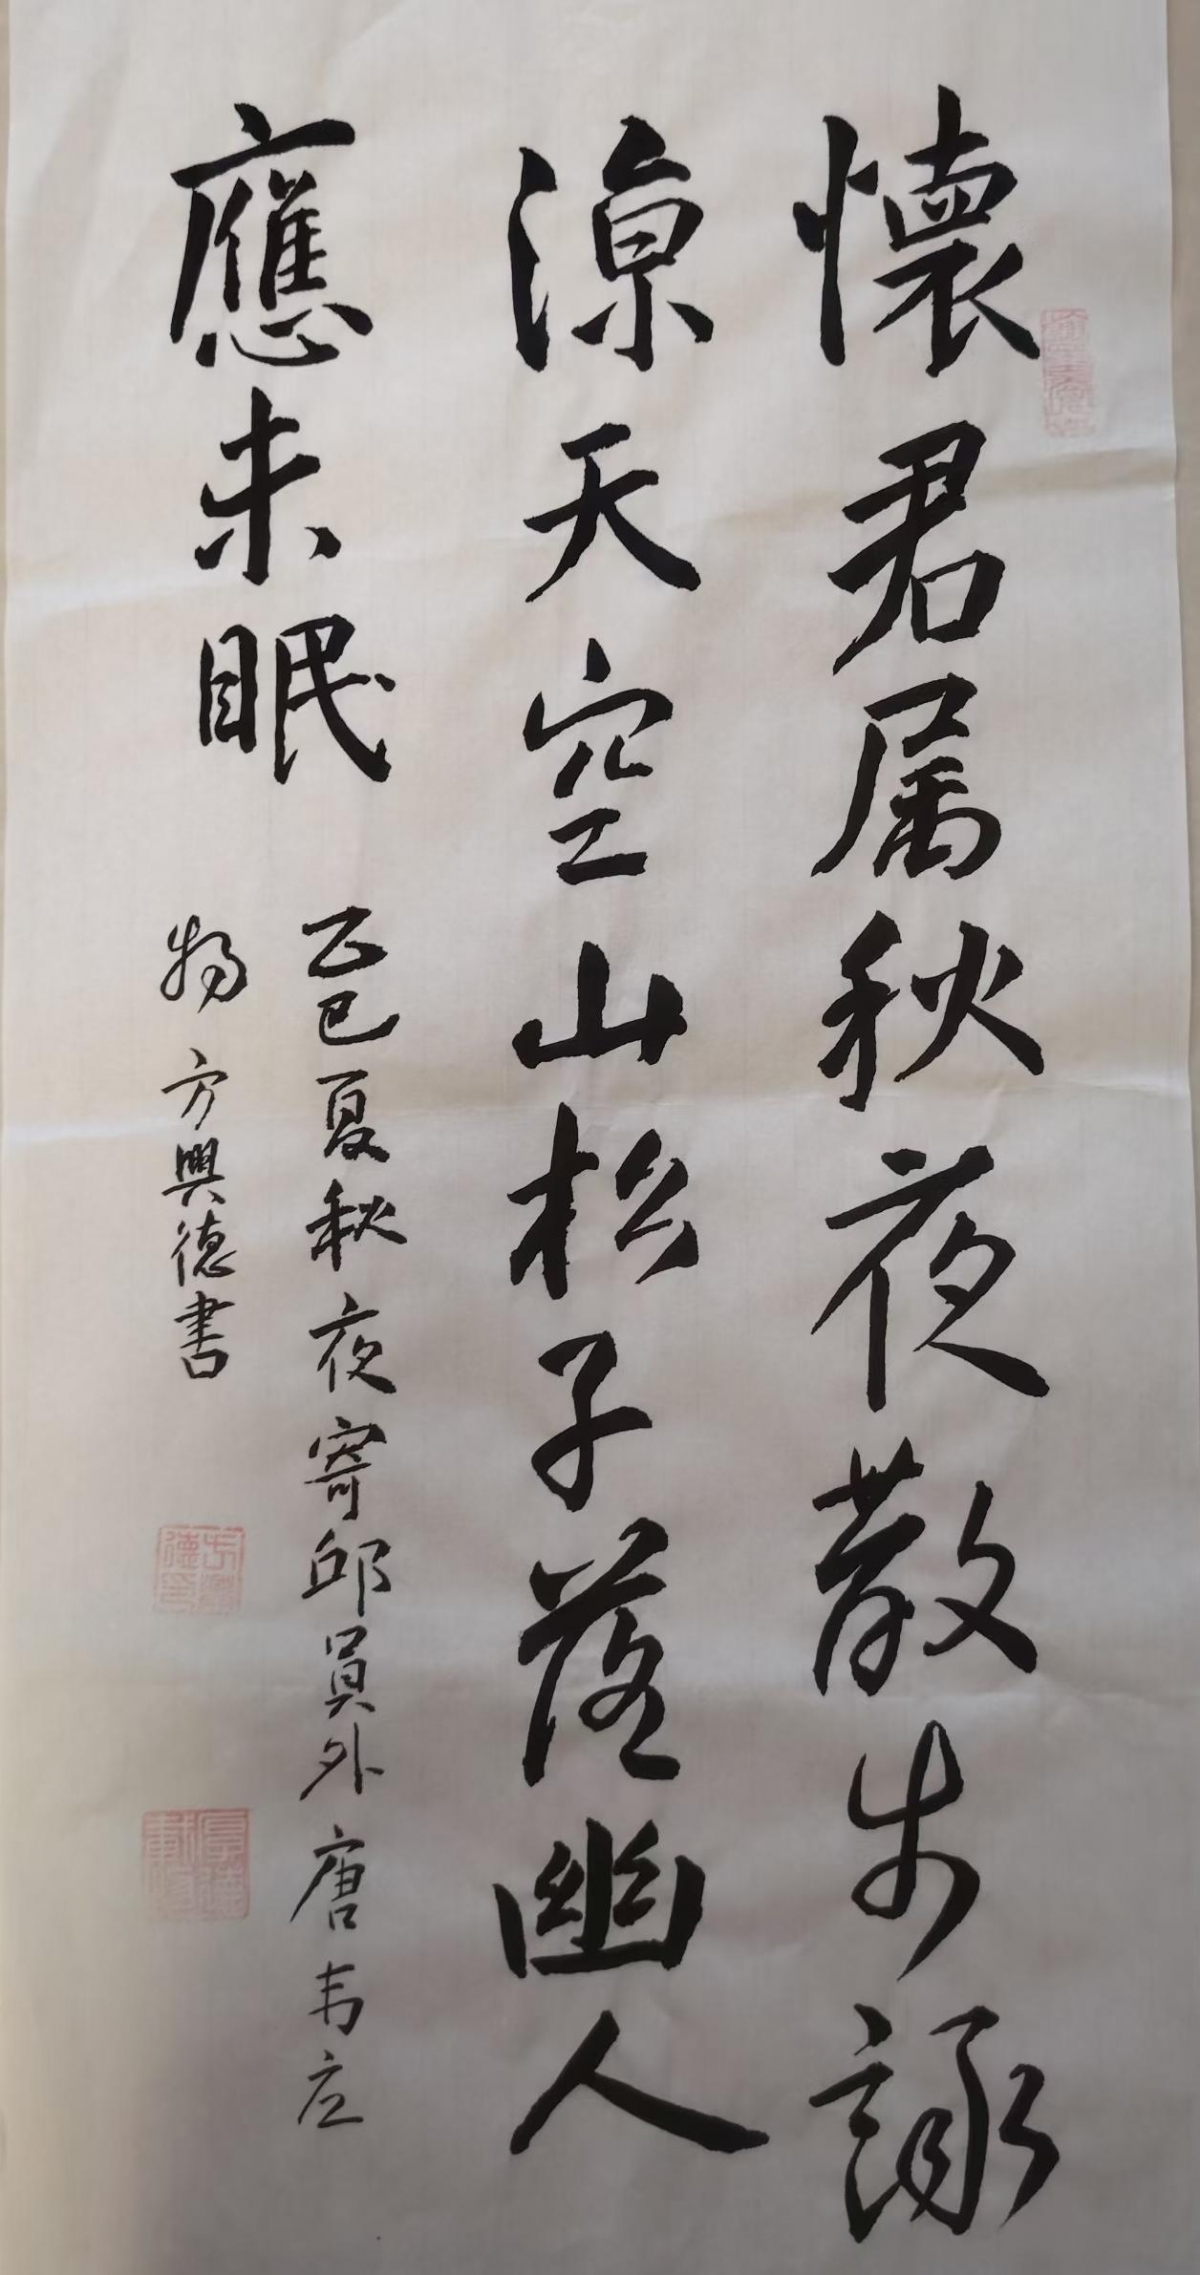 懷君属秋夜散步詠
涼天空山松子落幽人
應未眠
乙巳夏秋夜寄邱員外唐韦应
物方興德書